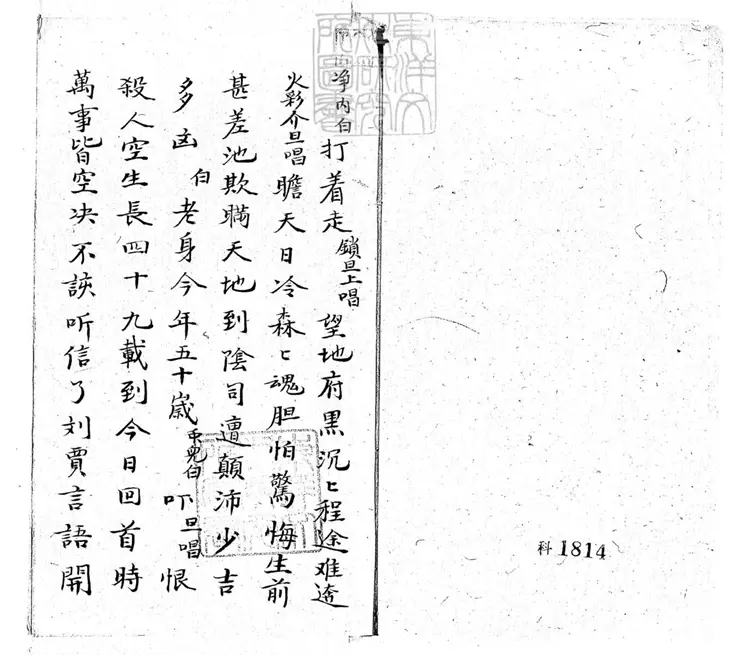 東洋文
化研究
所圖書
净内白打着走鎖旦上唱望地府黑沉匕程途难迯
火彩介旦唱瞻天日冷森匕魂胆怕驚悔生前
甚差池欺瞞天地到陰司遭顛沛少吉
多凶白老身今年五十歲鬼白吓旦唱恨
殺人空生長四十九載到今日回首時
萬事皆空决不該听信了刘賈言語開
科 1814